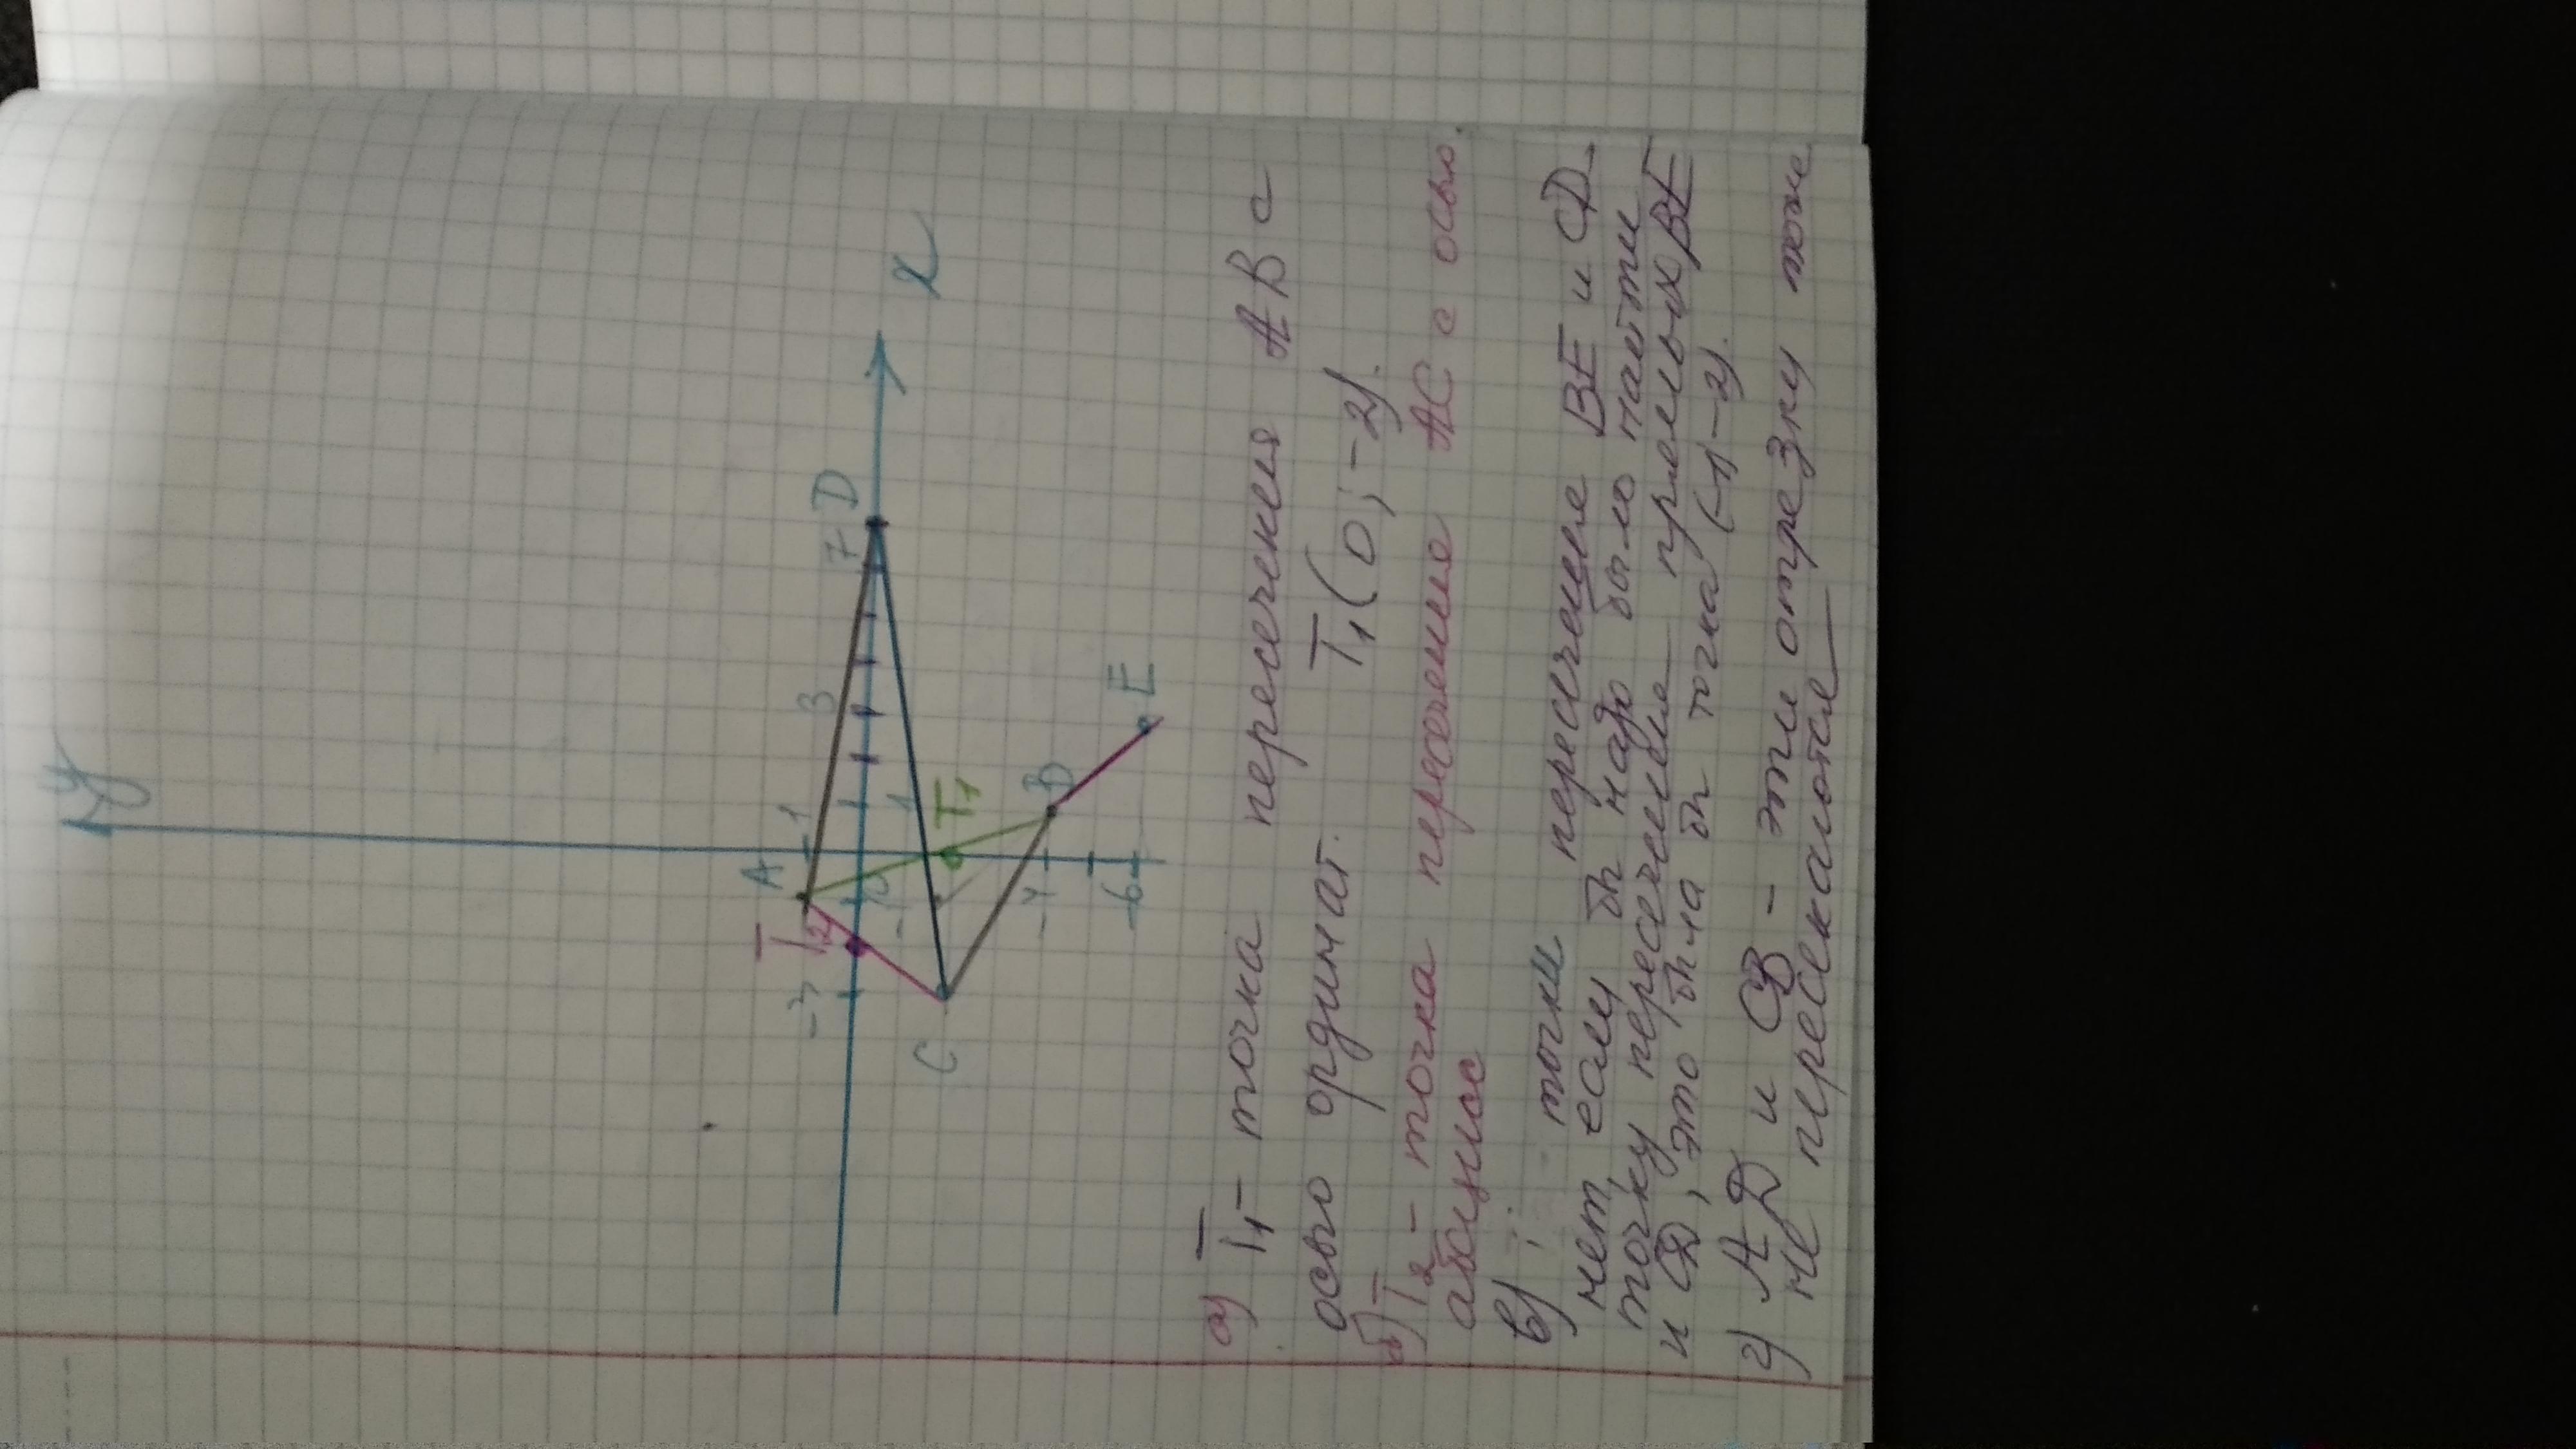 y
A
1
3
7
D
x
T₂
-3
0
1
-1
T₁
C
-4
B
-6
E
а) T₁ - точка пересечения AB с
осью ординат. T₁(0; -2).
б) T₂ - точка пересечение AC с осью
абсцисс
в) точки пересечение BE и CD
нет, если бы надо было найти
точку пересечение прямых BE
и CD, это была бы точка (-1; -2).
г) AD и CB - эти отрезки тоже
не пересекаются